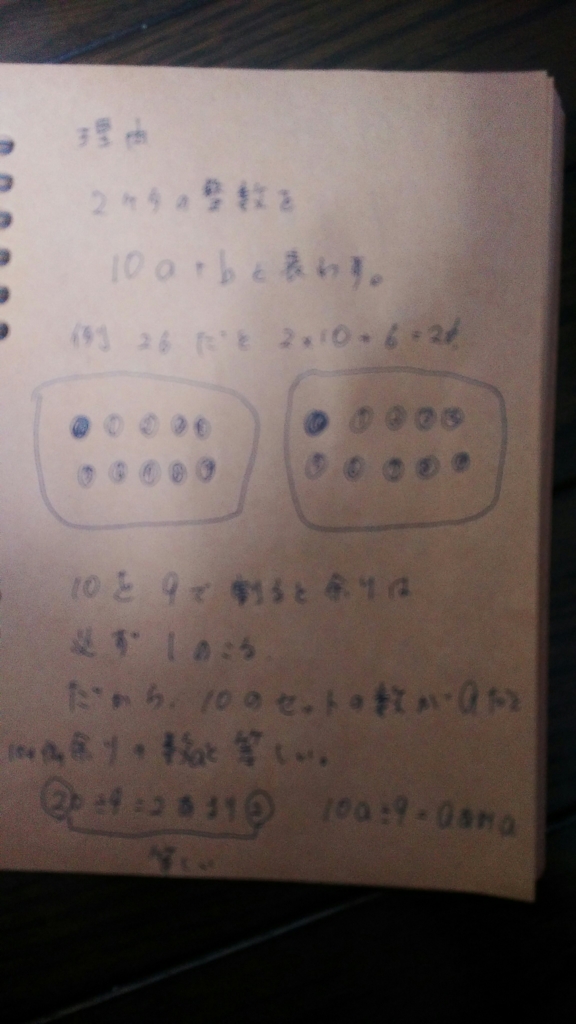 理由
2ケタの整数を
10a+bと表わす。
例 26だと 2×10+6=26
10を9で割ると余りは
必ず1のこる。
だから、10のセットの数がaだと
余りの数aと等しい。
20÷9=2あまり2 10a÷9=aあまりa
等しい